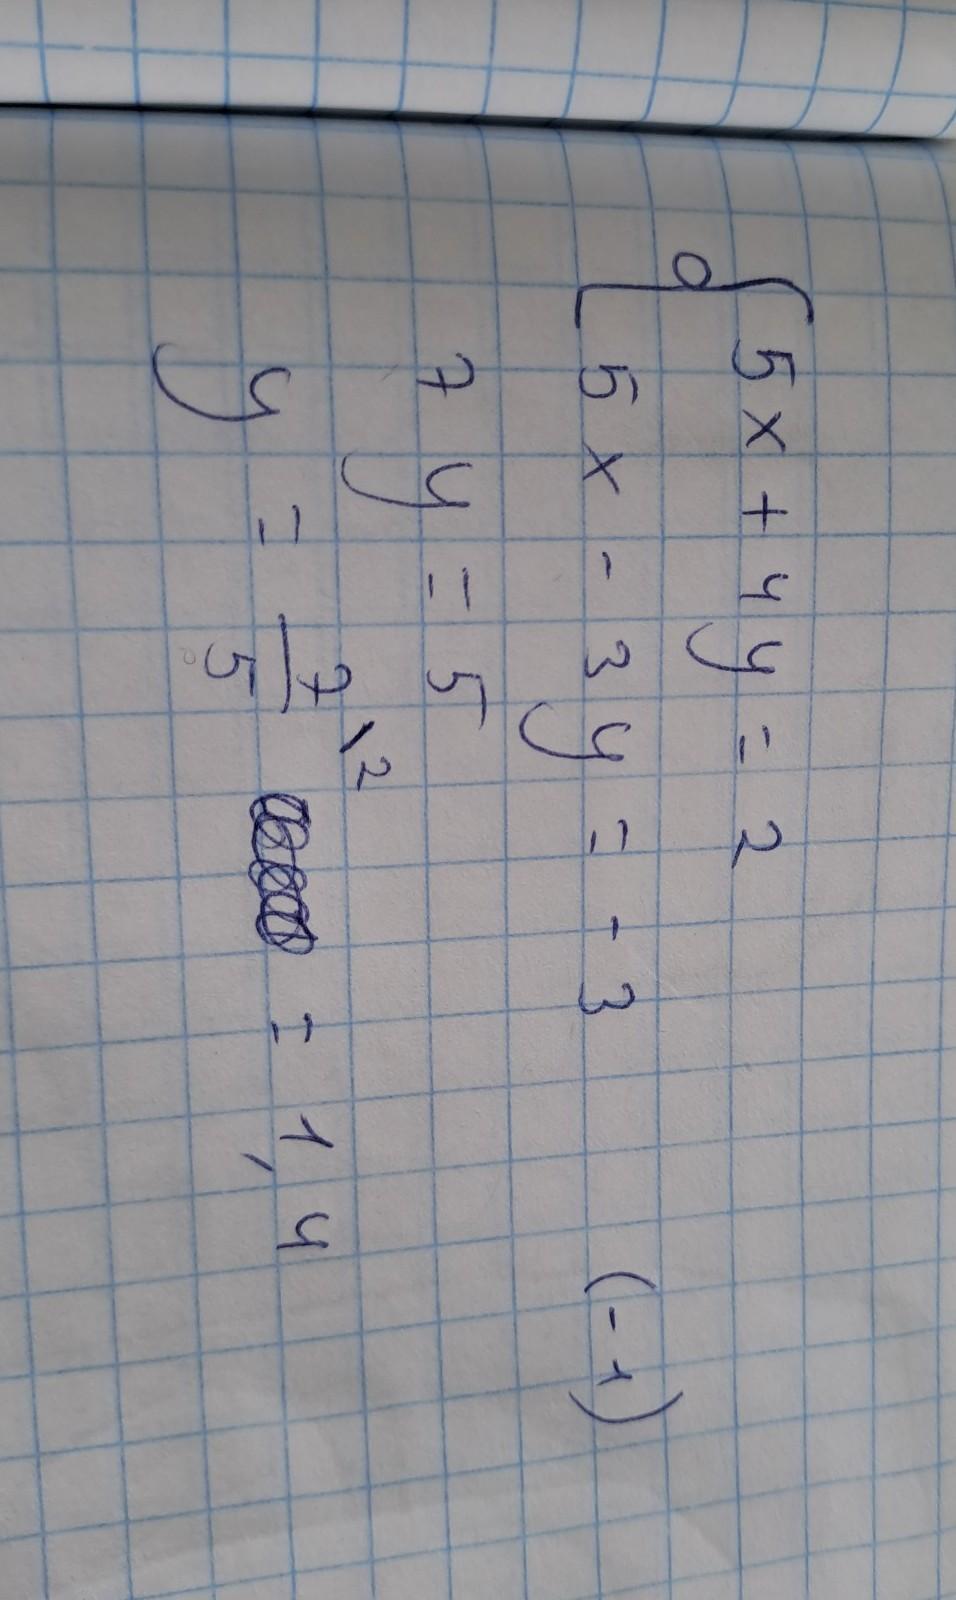 5x + 4y = 2
5x - 3y = -3 (-1)
7y = 5
y = 7\2 / 5 = 1,4